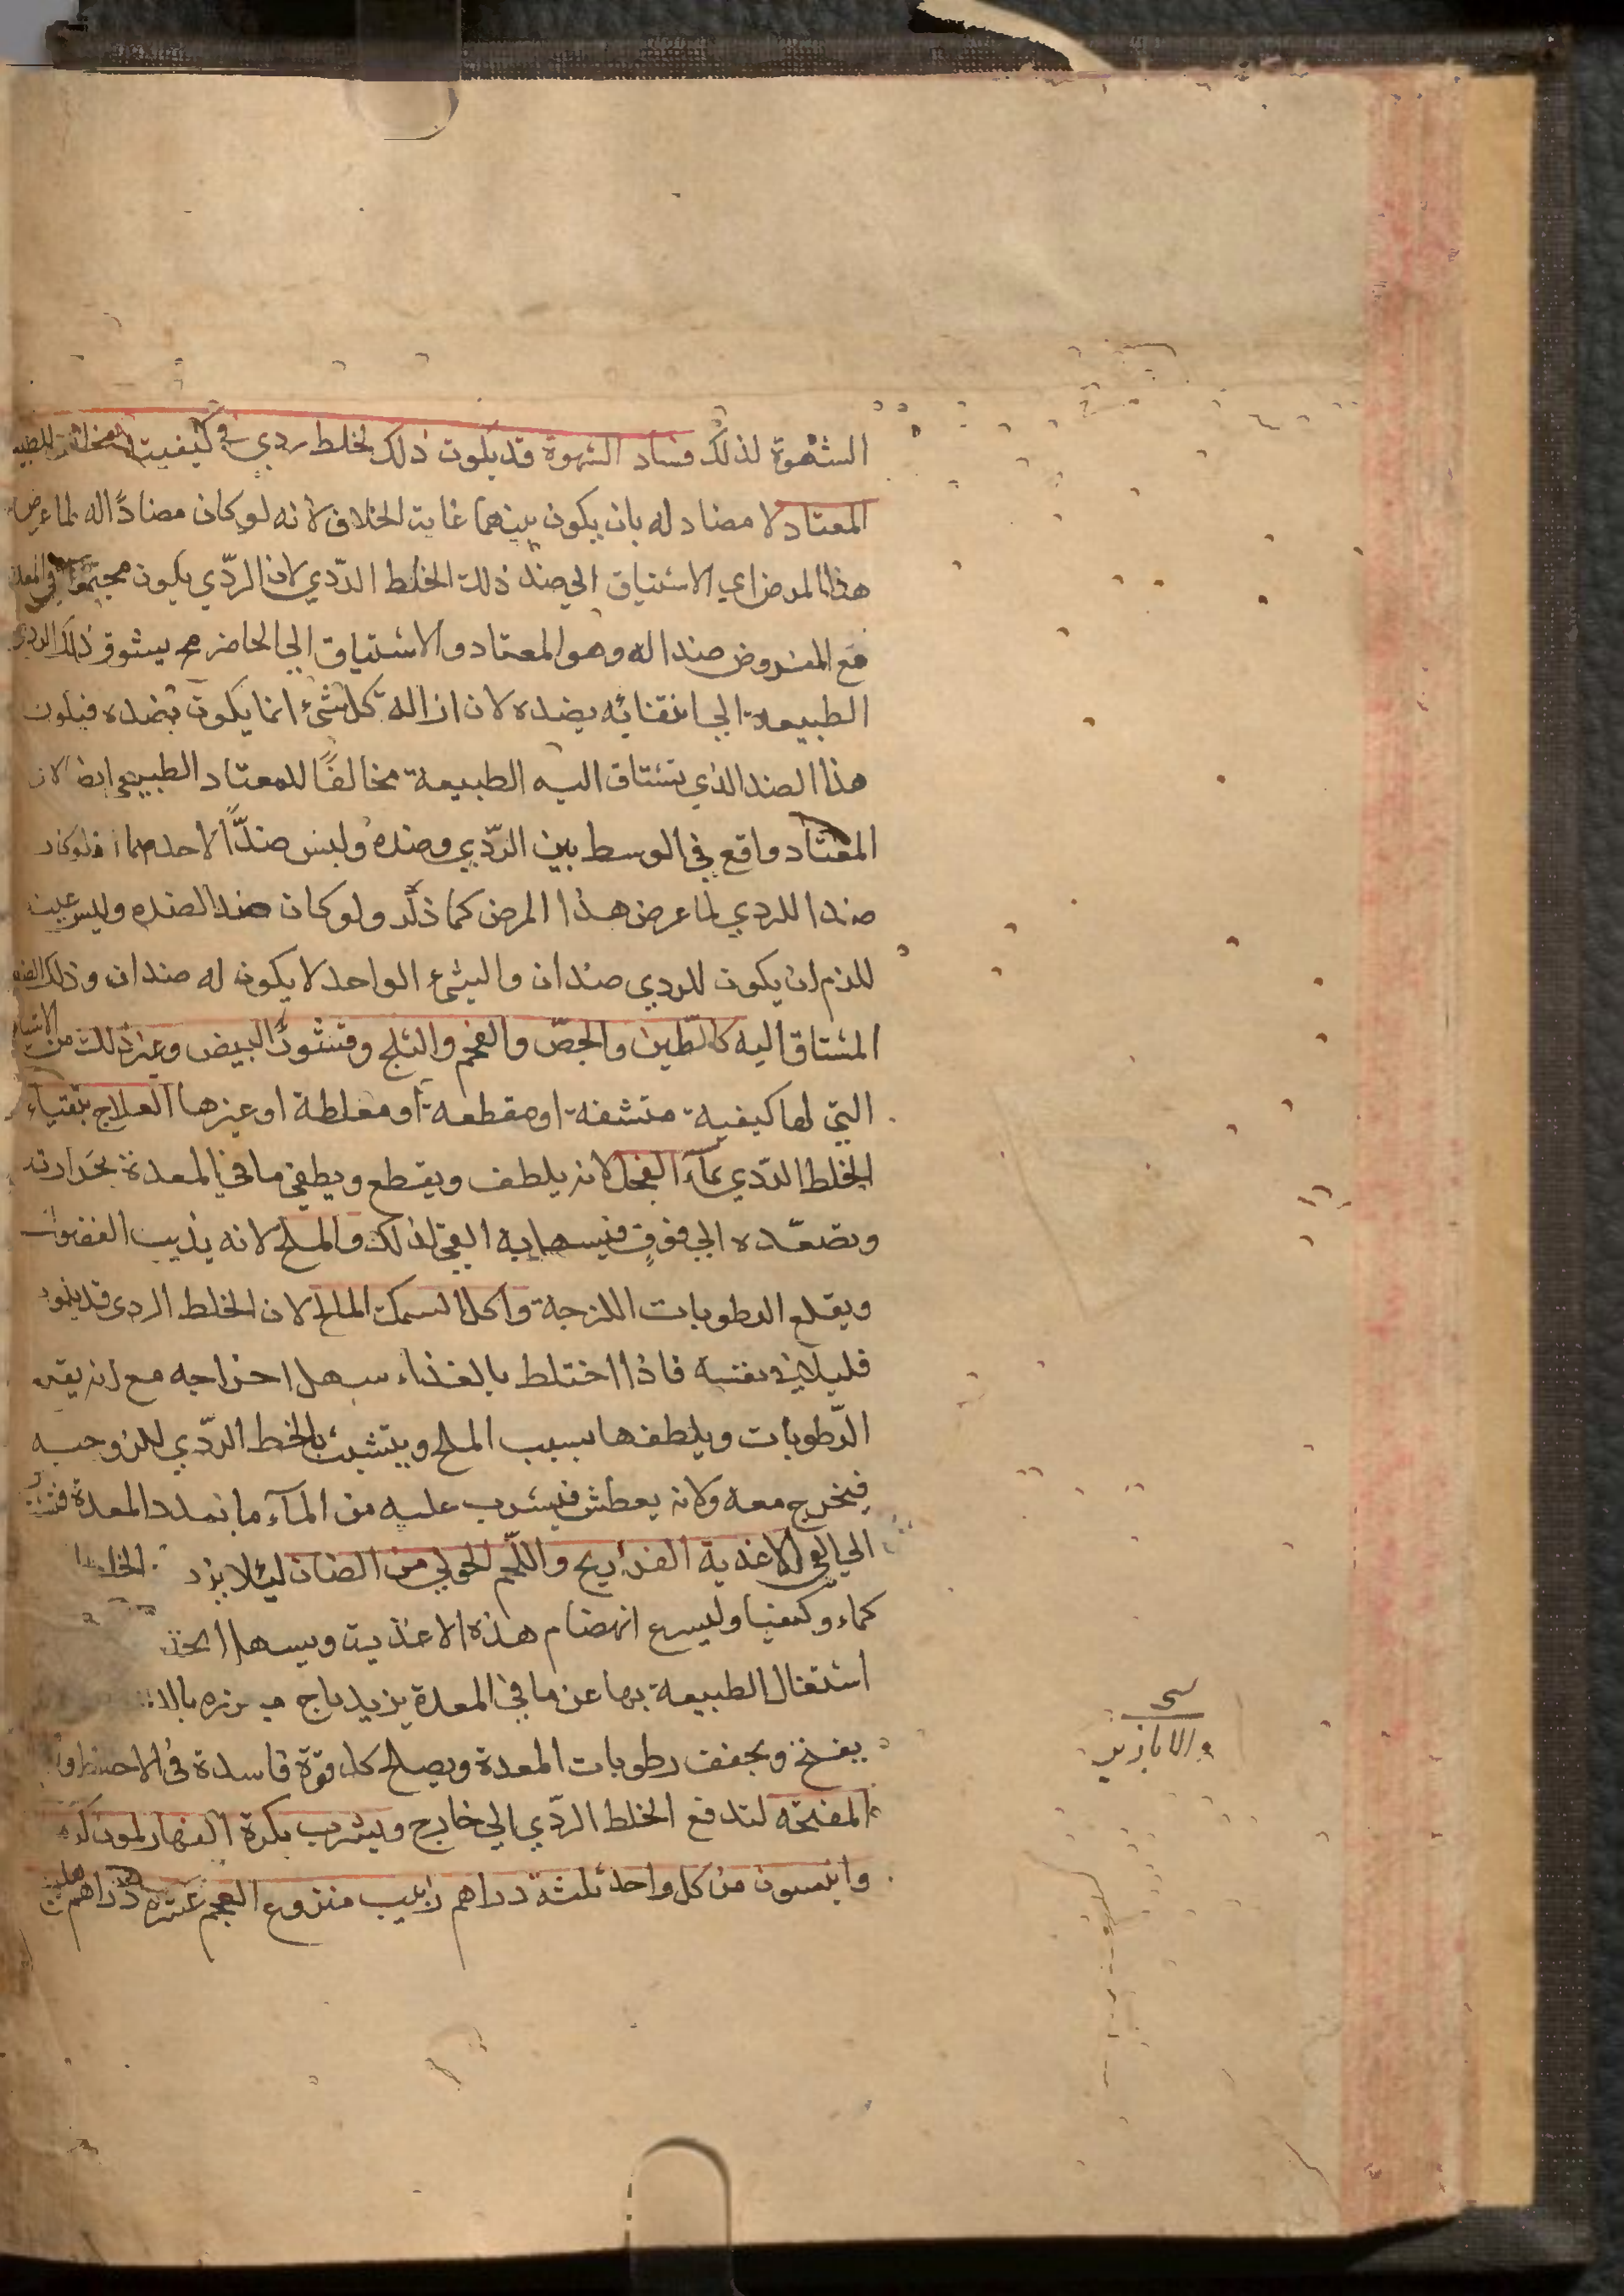 الشهوة لذلك فساد الشهوة قد يكون ذلك لخلط ردي في كيفيته مخالف للطبيعه
المعتاد لا مضاد له بان يكون بينهما غاية الخلاف لانه لو كان مضادًا له لما عرض
هذا المرض اي الاشتياق الي ضد ذلك الخلط الردّي لان الردّي يكون مجتمعا في المعدة
مع المفروض ضدا له وهو المعتاد والاشتياق الي الحاضر مح يشوق ذلك الردي
الطبيعة الي انتقائه بضده لان ازالة كل شئ انما يكون بضده فيكون
هذا الضد الذي تشتاق اليه الطبيعة مخالفًا للمعتاد الطبيعي ايضا لان
المعتاد واقع في الوسط بين الردّي وضده وليس ضدًّا لاحدهما اذ لو كان
ضدا للردي لما عرض هذا المرض كما ذكر ولو كان ضدا لضده وليس عينه
للزم ان يكون للردي ضدان والشئ الواحد لا يكون له ضدان وذلك الضد
المشتاق اليه كالطّين والجصّ والفحم والثلج وقشور البيض وغير ذلك من الاشياء
التي لها كيفية منشفة او مقطعة او مغلظة او غيرها العلاج بتقياء
الخلط الردّي بمآء الفجل لانه يلطف ويقطع ويطفي ما في المعدة بحرارته
وتصعّده الي فوق فيسهل به القئ لذلك والملح لانه يذيب الفضولات
ويقلع الرطوبات اللزجة واكل السمك المالح لان الخلط الردي قد يكون
قليلا في نفسه فاذا اختلط بالغذاء سهل اخراجه مع انه يقي
الرّطوبات ويلطفها بسبب الملح ويتشبث بالخط الردّي للزوجيه
فيخرج معه ولانه يعطش فيشرب عليه من المآء ما تمدد المعدة
الي القي الاغذية الفراريج واللّحم الحولي من الضان ليلا يزد الخلط
كماء وكيفيا وليسرع انهضام هذه الاغذية ويسهل
اشتغال الطبيعة بها عن ما في المعدة بزيرباج
يفتح ويجفف رطوبات المعدة ويصلح كل قوة فاسدة في الاحشا
المفتحه لتدفع الخلط الردّي الي خارج ويشرب بكرة النهار
وانيسون من كل واحد ثلثة دراهم زبيب منزوع العجم عشرة دراهم
والابازير